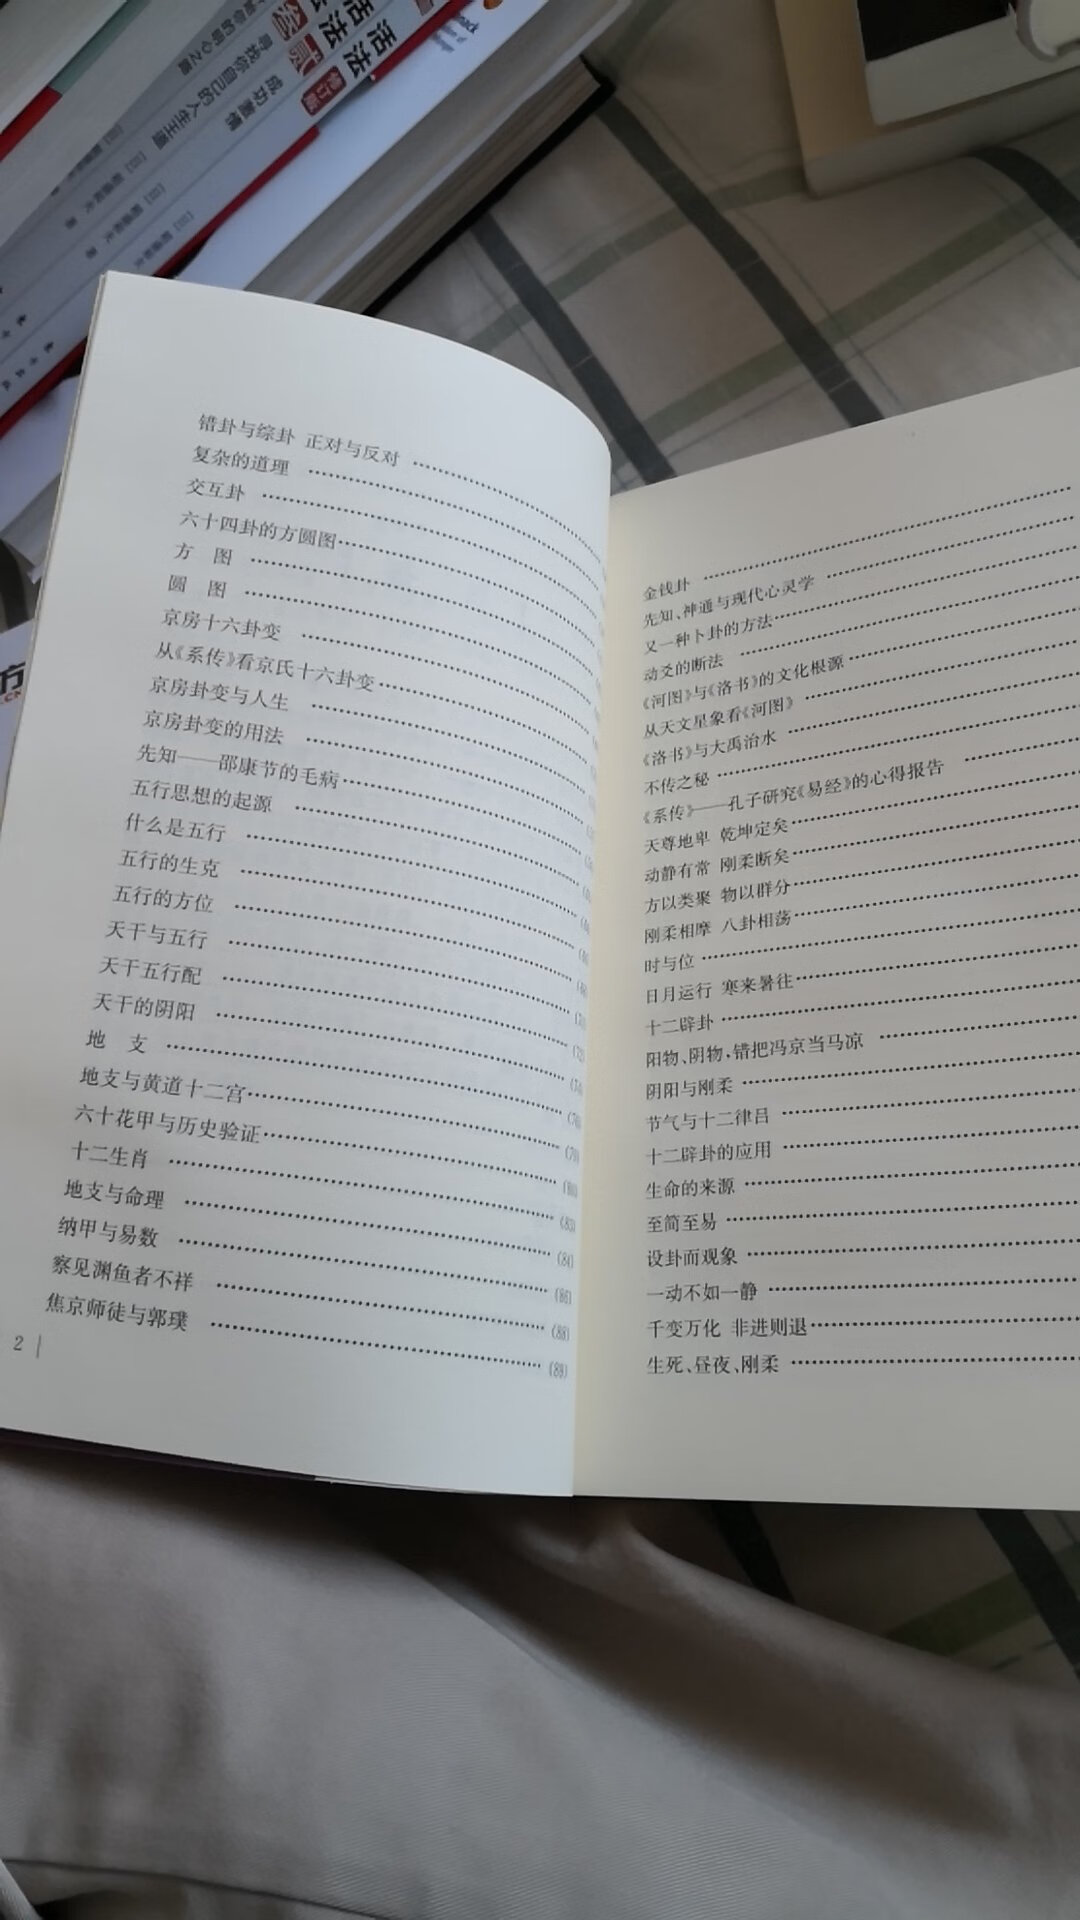 活法
活法 贰
活法 修订版
成功激情
寻找你自己的人生王道
错卦与综卦 正对与反对
复杂的道理
交互卦
六十四卦的方圆图
方 图
圆 图
京房十六卦变
从《系传》看京氏十六卦变
京房卦变与人生
京房卦变的用法
先知——邵康节的毛病
五行思想的起源
什么是五行
五行的生克
五行的方位
天干与五行
天干五行配
天干的阴阳
地 支
地支与黄道十二宫
六十花甲与历史验证
十二生肖
地支与命理
纳甲与易数 (86)
察见渊鱼者不祥 (88)
焦京师徒与郭璞 (89)
2
金钱卦
先知、神通与现代心灵学
又一种卜卦的方法
动爻的断法
《河图》与《洛书》的文化根源
从天文星象看《河图》
《洛书》与大禹治水
不传之秘
《系传》——孔子研究《易经》的心得报告
天尊地卑 乾坤定矣
动静有常 刚柔断矣
方以类聚 物以群分
刚柔相摩 八卦相荡
时与位
日月运行 寒来暑往
十二辟卦
阳物、阴物，错把冯京当马凉
阴阳与刚柔
节气与十二律吕
十二辟卦的应用
生命的来源
至简至易
设卦而观象
一动不如一静
千变万化 非进则退
生死、昼夜、刚柔